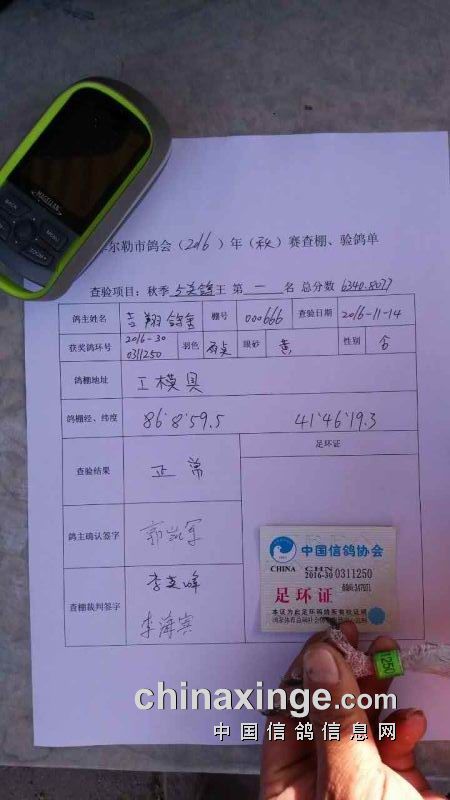 MAGELLAN
BACK
MENU
ZOOM
尔勒市鸽会(2016)年(秋)赛查棚、验鸽单
查验项目:秋季 鸽王 第 一 名 总分数 6340.8077
鸽主姓名 吉翔鸽舍 棚号 000666 查验日期 2016-11-14
获奖鸽环号 2016-30 0311250 羽色 雨点 眼砂 黄 性别
鸽棚地址 工模具
鸽棚经、纬度 86°8'59.5 41°46'19.3
查验结果 正常
足环证
鸽主确认签字
查棚裁判签字 李英峰
李海宾
中国信鸽协会
CHINA CHN
2016-30 0311250
足环证
本证为此足环鸽所有权证明
1250
chinaxinge.com
中国信鸽信息网